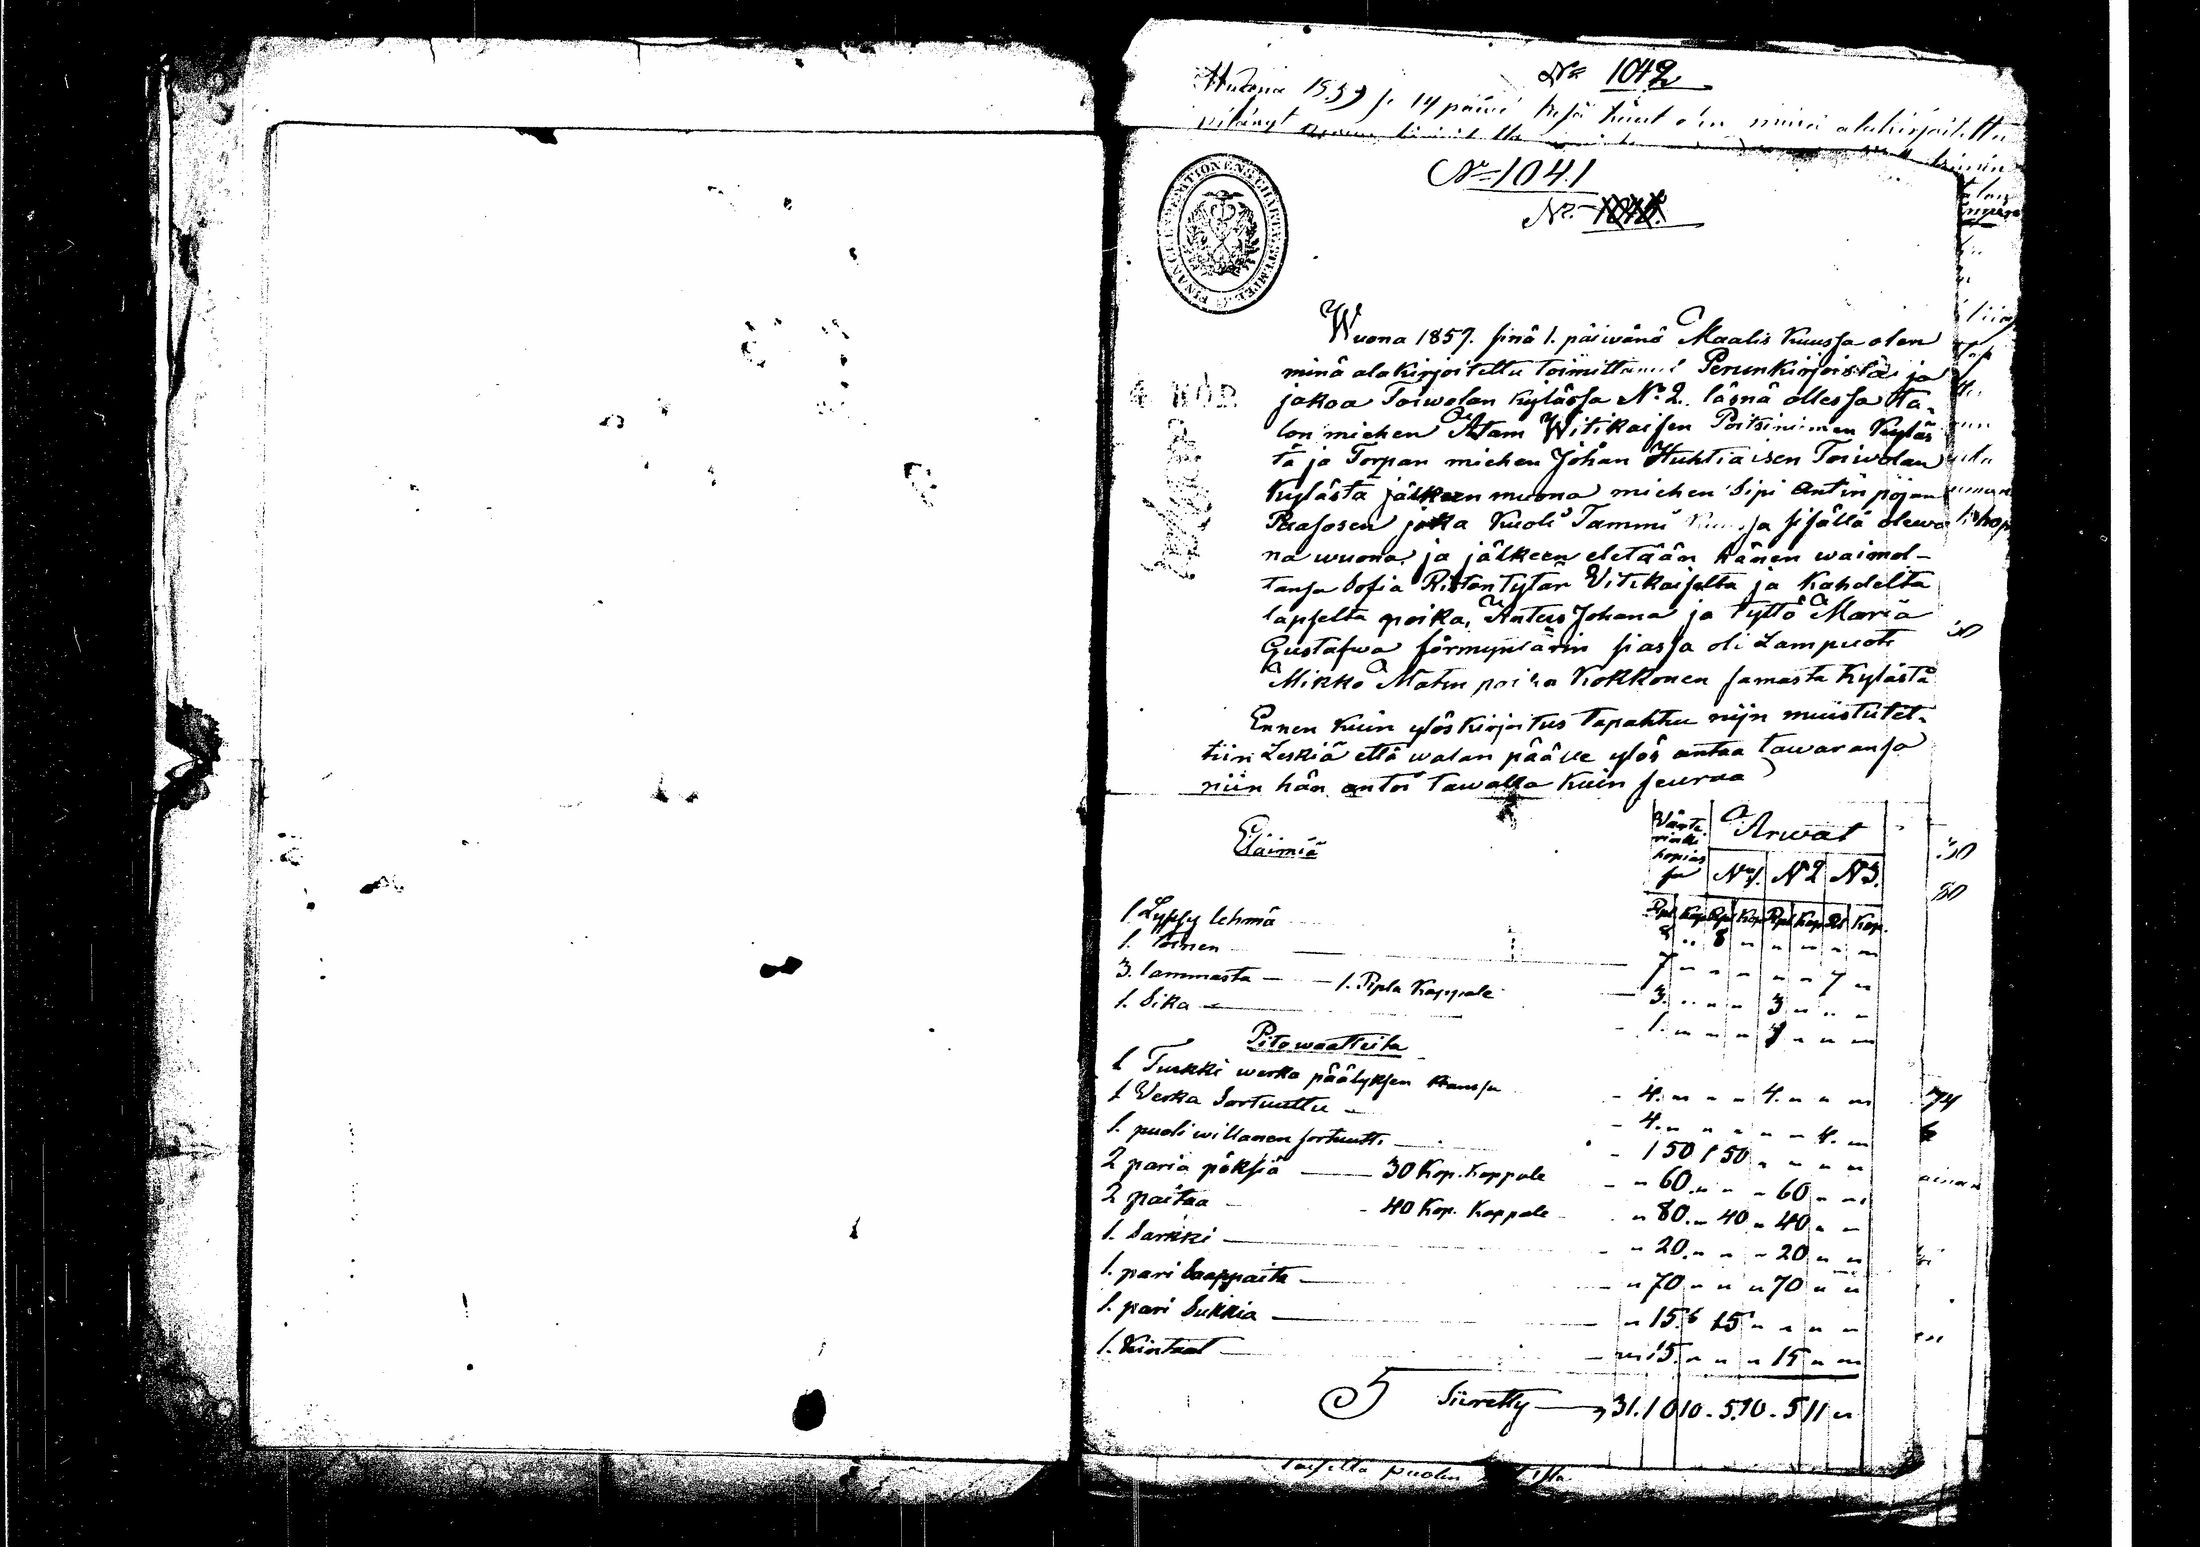 No 1042
14 päivä kesä kuul olen minä alakirjoitettu
No 1041
No
FINANCE EXPEDITIONENS CHARTÆ STEMPEL
4 KOP.
Wuona 1857. sinä 1. päivänä Maalis kuussa olen
minä alakirjoitettu toimittanut Perunkirjoista ja
jakoa Toiwolan kylässä No 2. läsnä ollessa ta-
lon miehen Atam Witikaisen Poitsinimen Kyläs
tä ja Torpan miehen Johan Huhtiaisen Toiwolan
kylästä jälkeen muona miehen Sipi Antin pojan
Paasosen joka kuoli Tammi kuussa sisällä olewa
na wuona, ja jälkeen eletään hänen waimol-
tansa Sofia Ristontytär Vitikaiselta ja kahdelta
lapselta poika, Anters Johana ja tyttö Maria
Gustafwa förmyntärin siassa oli Lampuoti
Mikko Matin poika Kokkonen samasta kylästä
Ennen kuin ylöskirjoitus tapahtu nijn muistutet-
tiin Leskiä että walan pääle ylös antaa tawaransa
niin hän antoi tawalla kuin seuraa
Eläimiä
Arwat
No 1. N 2 N 3.
Rpl Kop Rpl Kop Rpl Kop Rl Kop.
1. Lypsy lehmä 8 " 8 " " " " "
1. toinen 7 " " " " " 7 "
3. lammasta 1. Rpla kappale 3. " " " 3 " " "
1. Sika 1. " " " 1 " " "
Pitowaatteita
1 Turkki werka päälyksen kanssa 4. " " " 4. " " "
1 Verka Sortuuttu 4. " " " " " 4. "
1. puoliwillanen sortuutti 1 50 1 50 " " " "
2 paria pöksiä 30 Kop. kappale " 60 " " " 60 " "
2 paitaa 40 Kop. kappale " 80 " 40 " 40 " "
1. Sarkki " 20 " " " 20 " "
1. pari Saappaita " 70 " " " 70 " "
1. pari Sukkia " 15 " 15 " " " "
1. Kintaat " 15 " " " 15 " "
Siiretty 31. 10 10 . 5. 10 . 5 11 "